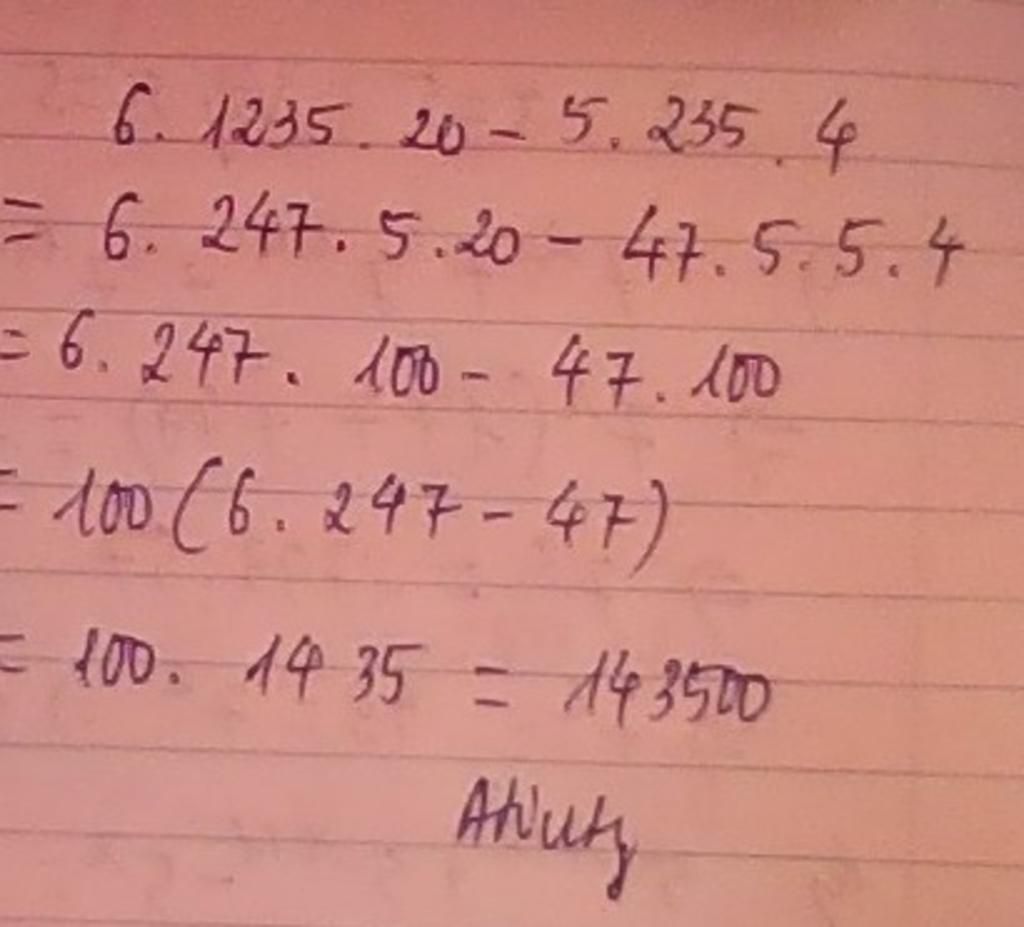 6. 1235. 20 - 5. 235. 4
= 6. 247. 5.20 - 47. 5. 5. 4
= 6. 247. 100 - 47. 100
= 100 (6. 247 - 47)
= 100. 1435 = 143500